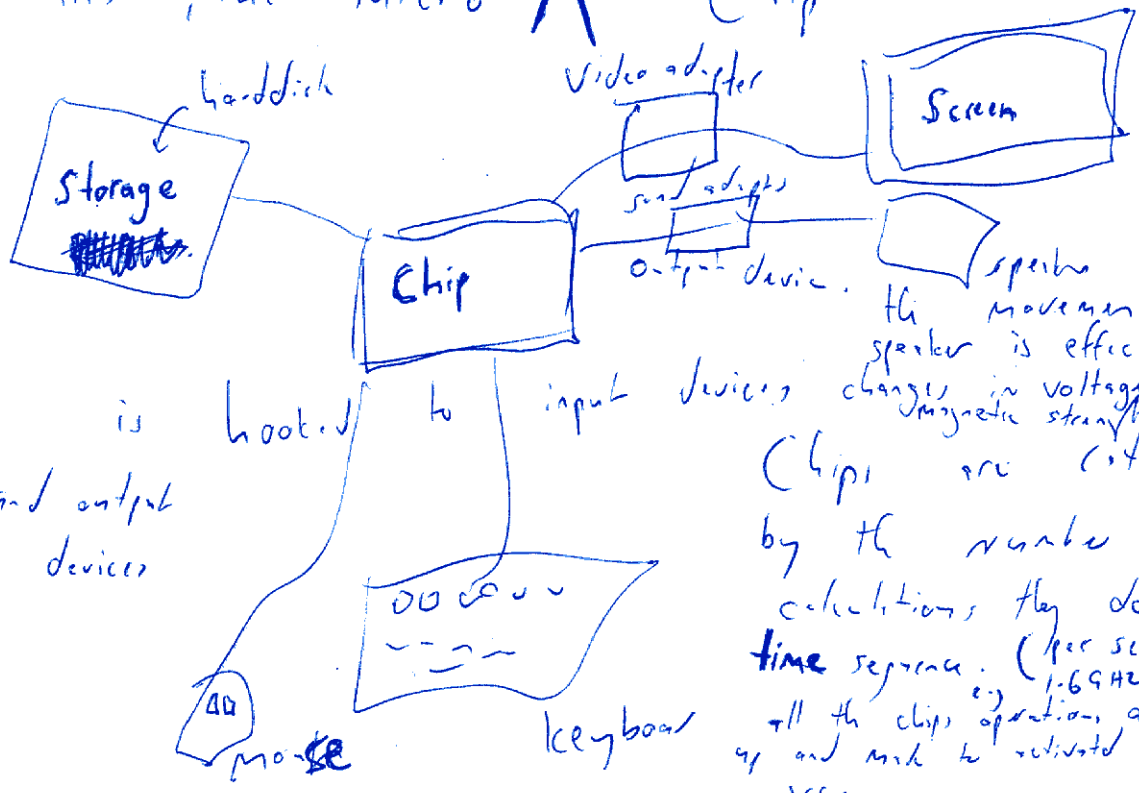 Chip
harddisk
Video adapter
Screen
Storage
sound adapter
Chip
Output device.
speaker
th movemen
speaker is effec
is hooked to input devices
changes in voltage
magnetic strength
and output
devices
Chips are
by th number
calculations they do
time sequence. (per se
e.g 1.6GHZ
all th chips operations a
up and to activated
mouse
keyboar